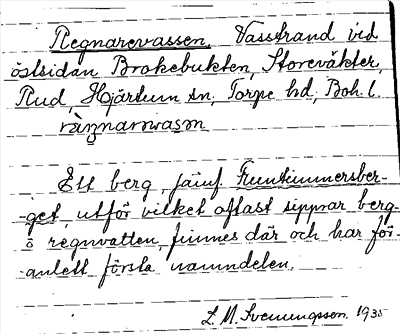 Regnarevassen. Vasstrand vid
östsidan Brokebukten, Storeväkter,
Rud, Hjärtum sn, Torpe hd, Boh. l.
Ett berg, jämf. Fruntimmersber-
-get, utför vilket oftast sipprar berg-
o regnvatten, finnes där och har för-
-anlett första namndelen.
1935